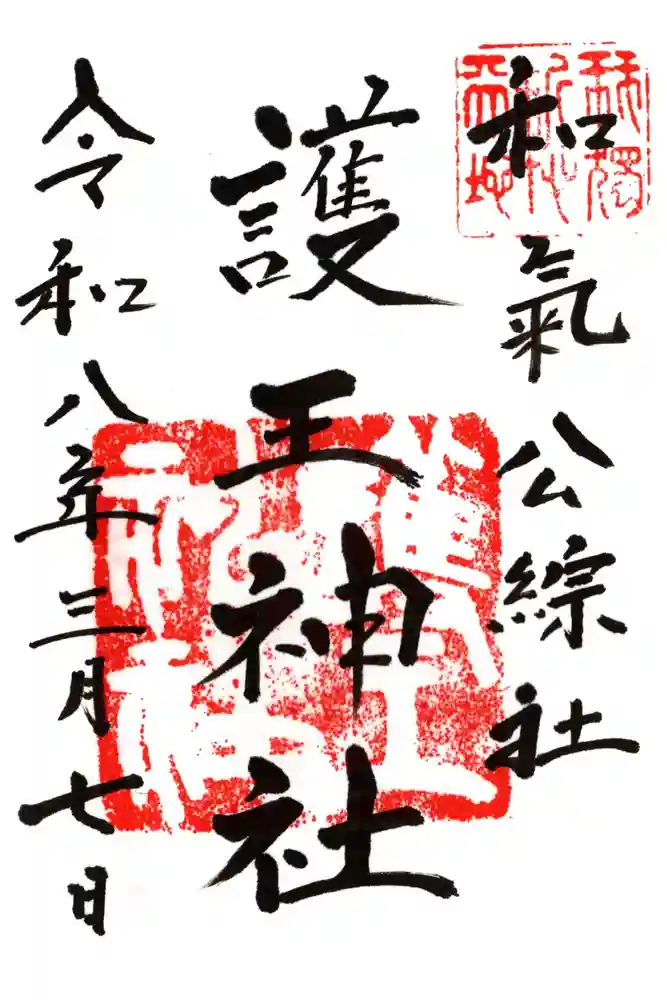 和氣公綜社
護王神社
令和八年三月七日